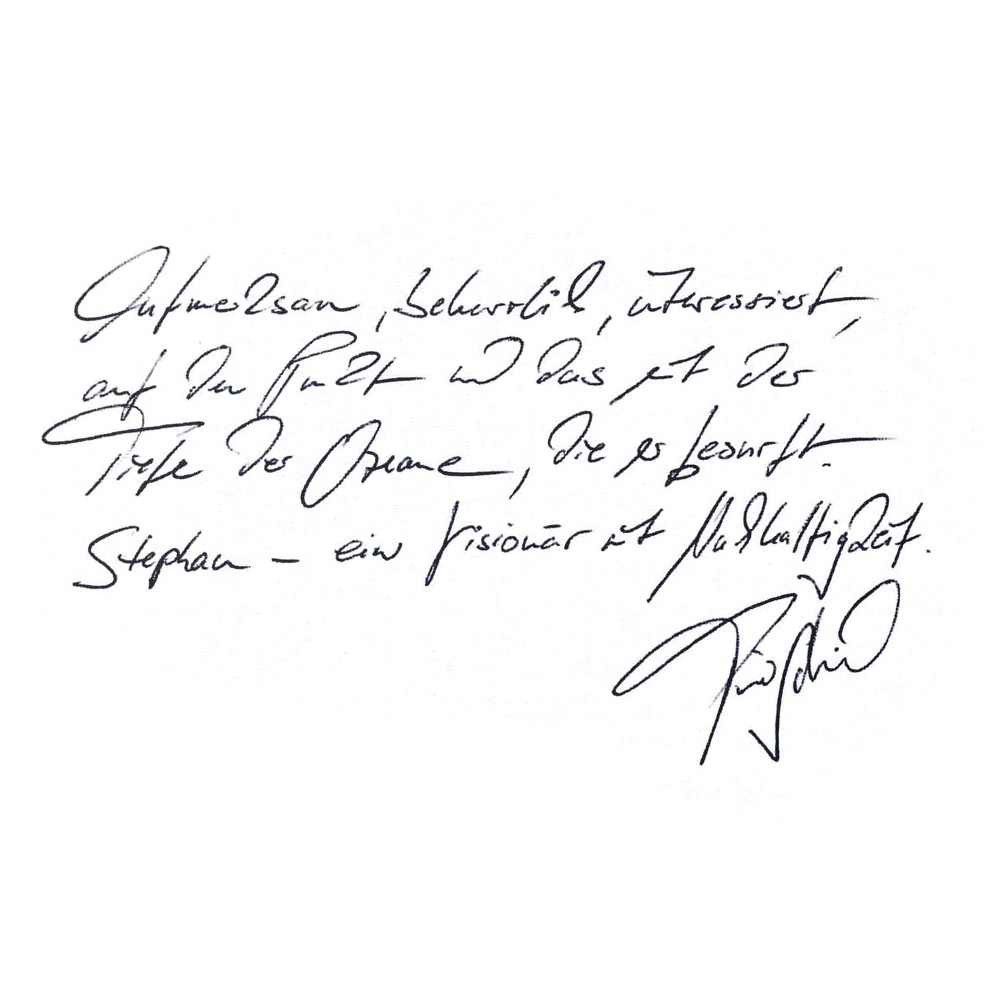 Aufmerksam, beharrlich, interessiert,
auf den Punkt und das mit der
Tiefe der Ozeane, die er besurft.
Stephan – ein Visionär mit Nachhaltigkeit.